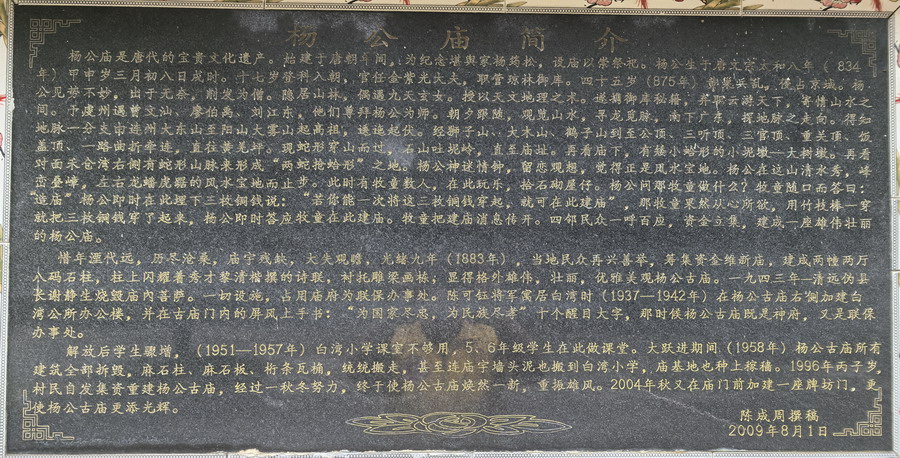 杨公庙简介
杨公庙是唐代的宝贵文化遗产。始建于唐朝年间，为纪念堪舆家杨筠松，设庙以崇祭祀。杨公生于唐文宗太和八年（834
年）甲申岁三月初八日戌时。十七岁登科入朝，官任金紫光大夫，职管琼林御库。四十五岁（875年）黄巢兵乱，侵占京城。杨
公见势不妙，出于无奈，削发为僧。隐居山林，偶遇九天玄女。授以天文地理之术。遂携御库秘籍，昇邪云游天下，寄情山水之
间。于虔州遇曾文汕、廖伯禹、刘江东，他们尊拜杨公为师。朝夕跟随，观览山水，寻龙觅脉，南下广东，探地脉之走向。得知
地脉一分支由连州大东山至阳山大雾山起高祖，逶迤起伏。经狮子山、大木山、鹤子山到至公顶、三听顶、三官顶、重关顶、饭
盖顶、一路曲折牵连，直往黄羌坪。现蛇形穿山而过，石山吐坭岭，直至庙址。再看庙下，有矮小蛤形的小泥墩—大树墩。再看
对面禾仓湾右侧有蛇形山脉来形成“两蛇抢蛤形”之地。杨公神迷情钟，留恋观想，觉得正是风水宝地。杨公在这山清水秀，峰
峦叠嶂，左右龙蟠虎踞的风水宝地而止步。此时有牧童数人，在此玩乐，拾石砌屋仔。杨公问那牧童做什么？牧童随口而答曰：
“造庙”杨公即时在此埋下三枚铜钱说：“若你能一次将这三枚铜钱穿起，就可在此建庙”，那牧童果然从心所欲，用竹枝棒一穿
就把三枚铜钱穿了起来，杨公即时答应牧童在此建庙。牧童把建庙消息传开。四邻民众一呼百应，资金立集，建成一座雄伟壮丽
的杨公庙。
惜年湮代远，历尽沧桑，庙宇残缺，大失观瞻，光绪九年（1883年），当地民众再兴善举，筹集资金维新庙，建成两幢两厅
八码石柱，柱上闪耀着秀才黎清楷撰的诗联，衬托雕梁画栋；显得格外雄伟，壮丽，优雅美观杨公古庙。一九四三年—清远伪县
长谢静生烧毁庙内菩萨。一切设施，占用庙府为联保办事处。陈可钰将军寓居白湾时（1937—1942年）在杨公古庙右侧加建白
湾公所办公楼，并在古庙门内的屏风上手书：“为国家尽忠，为民族尽孝”十个醒目大字，那时候杨公古庙既是神府，又是联保
办事处。
解放后学生骤增，（1951—1957年）白湾小学课室不够用，5、6年级学生在此做课堂。大跃进期间（1958年）杨公古庙所有
建筑全部拆毁，麻石柱、麻石板、桁条瓦桷，统统搬走，甚至连庙宇墙头泥也搬到白湾小学，庙基地也种上稼穑。1996年丙子岁，
村民自发集资重建杨公古庙，经过一秋冬努力，终于使杨公古庙焕然一新，重振雄风。2004年秋又在庙门前加建一座牌坊门，更
使杨公古庙更添光辉。
陈成周撰稿
2009年8月1日